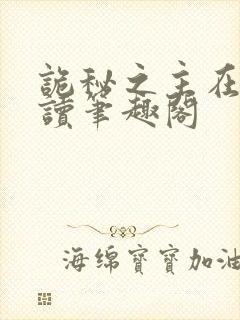 詭秘之主在
讀筆趣閣
海绵寶寶加油